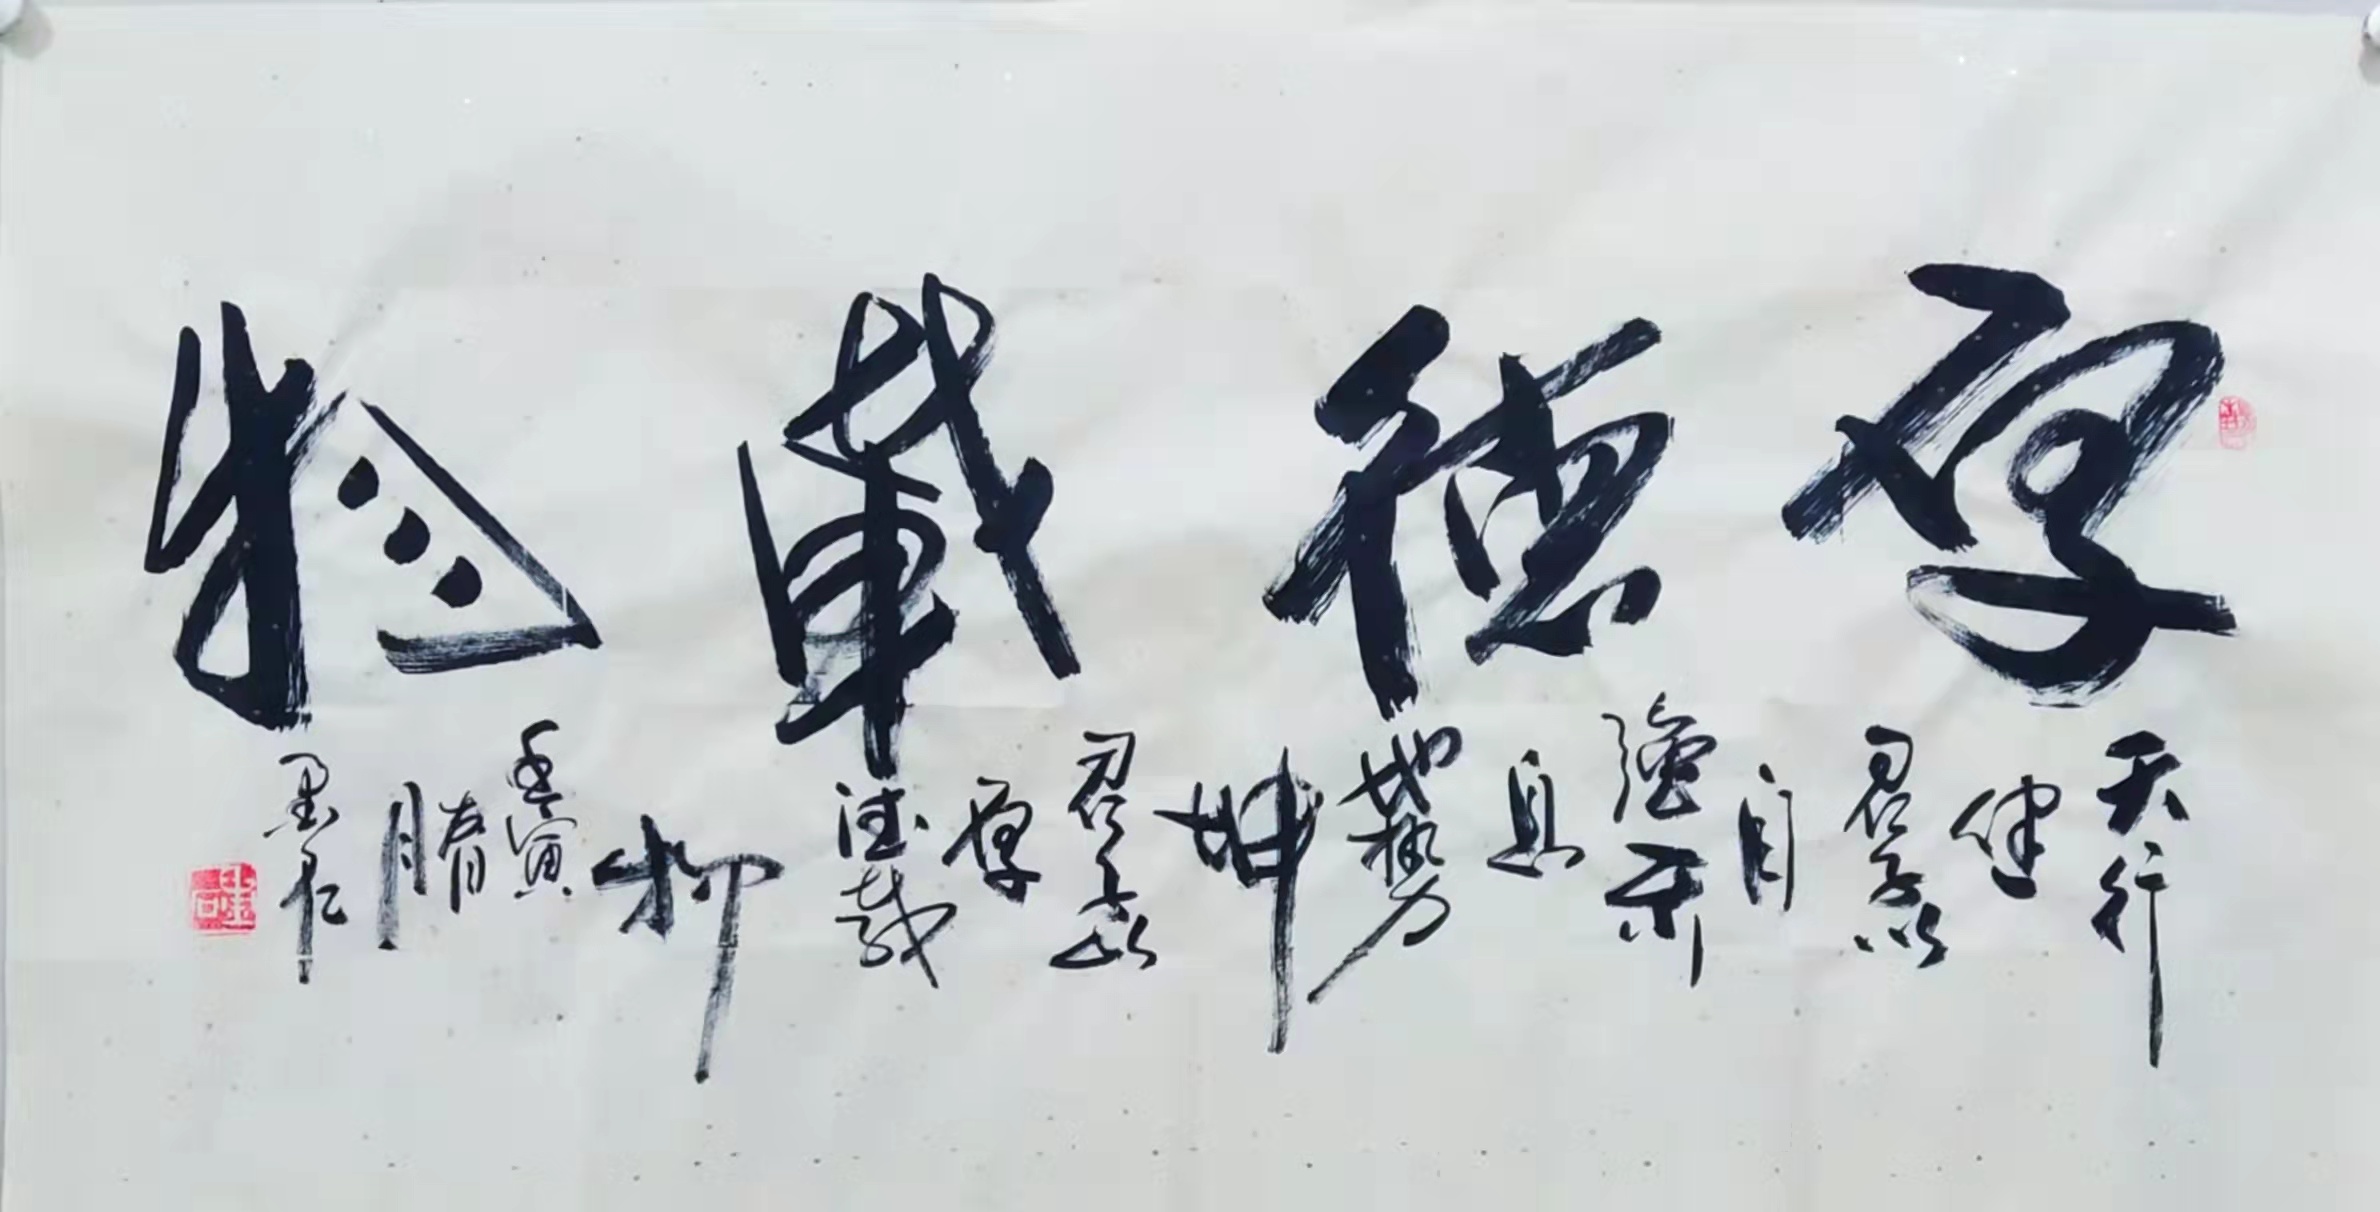 厚德載物
天行
健
君子以
自
強不
息
地勢
坤
君子以
厚
德載
物
壬寅
腊
月